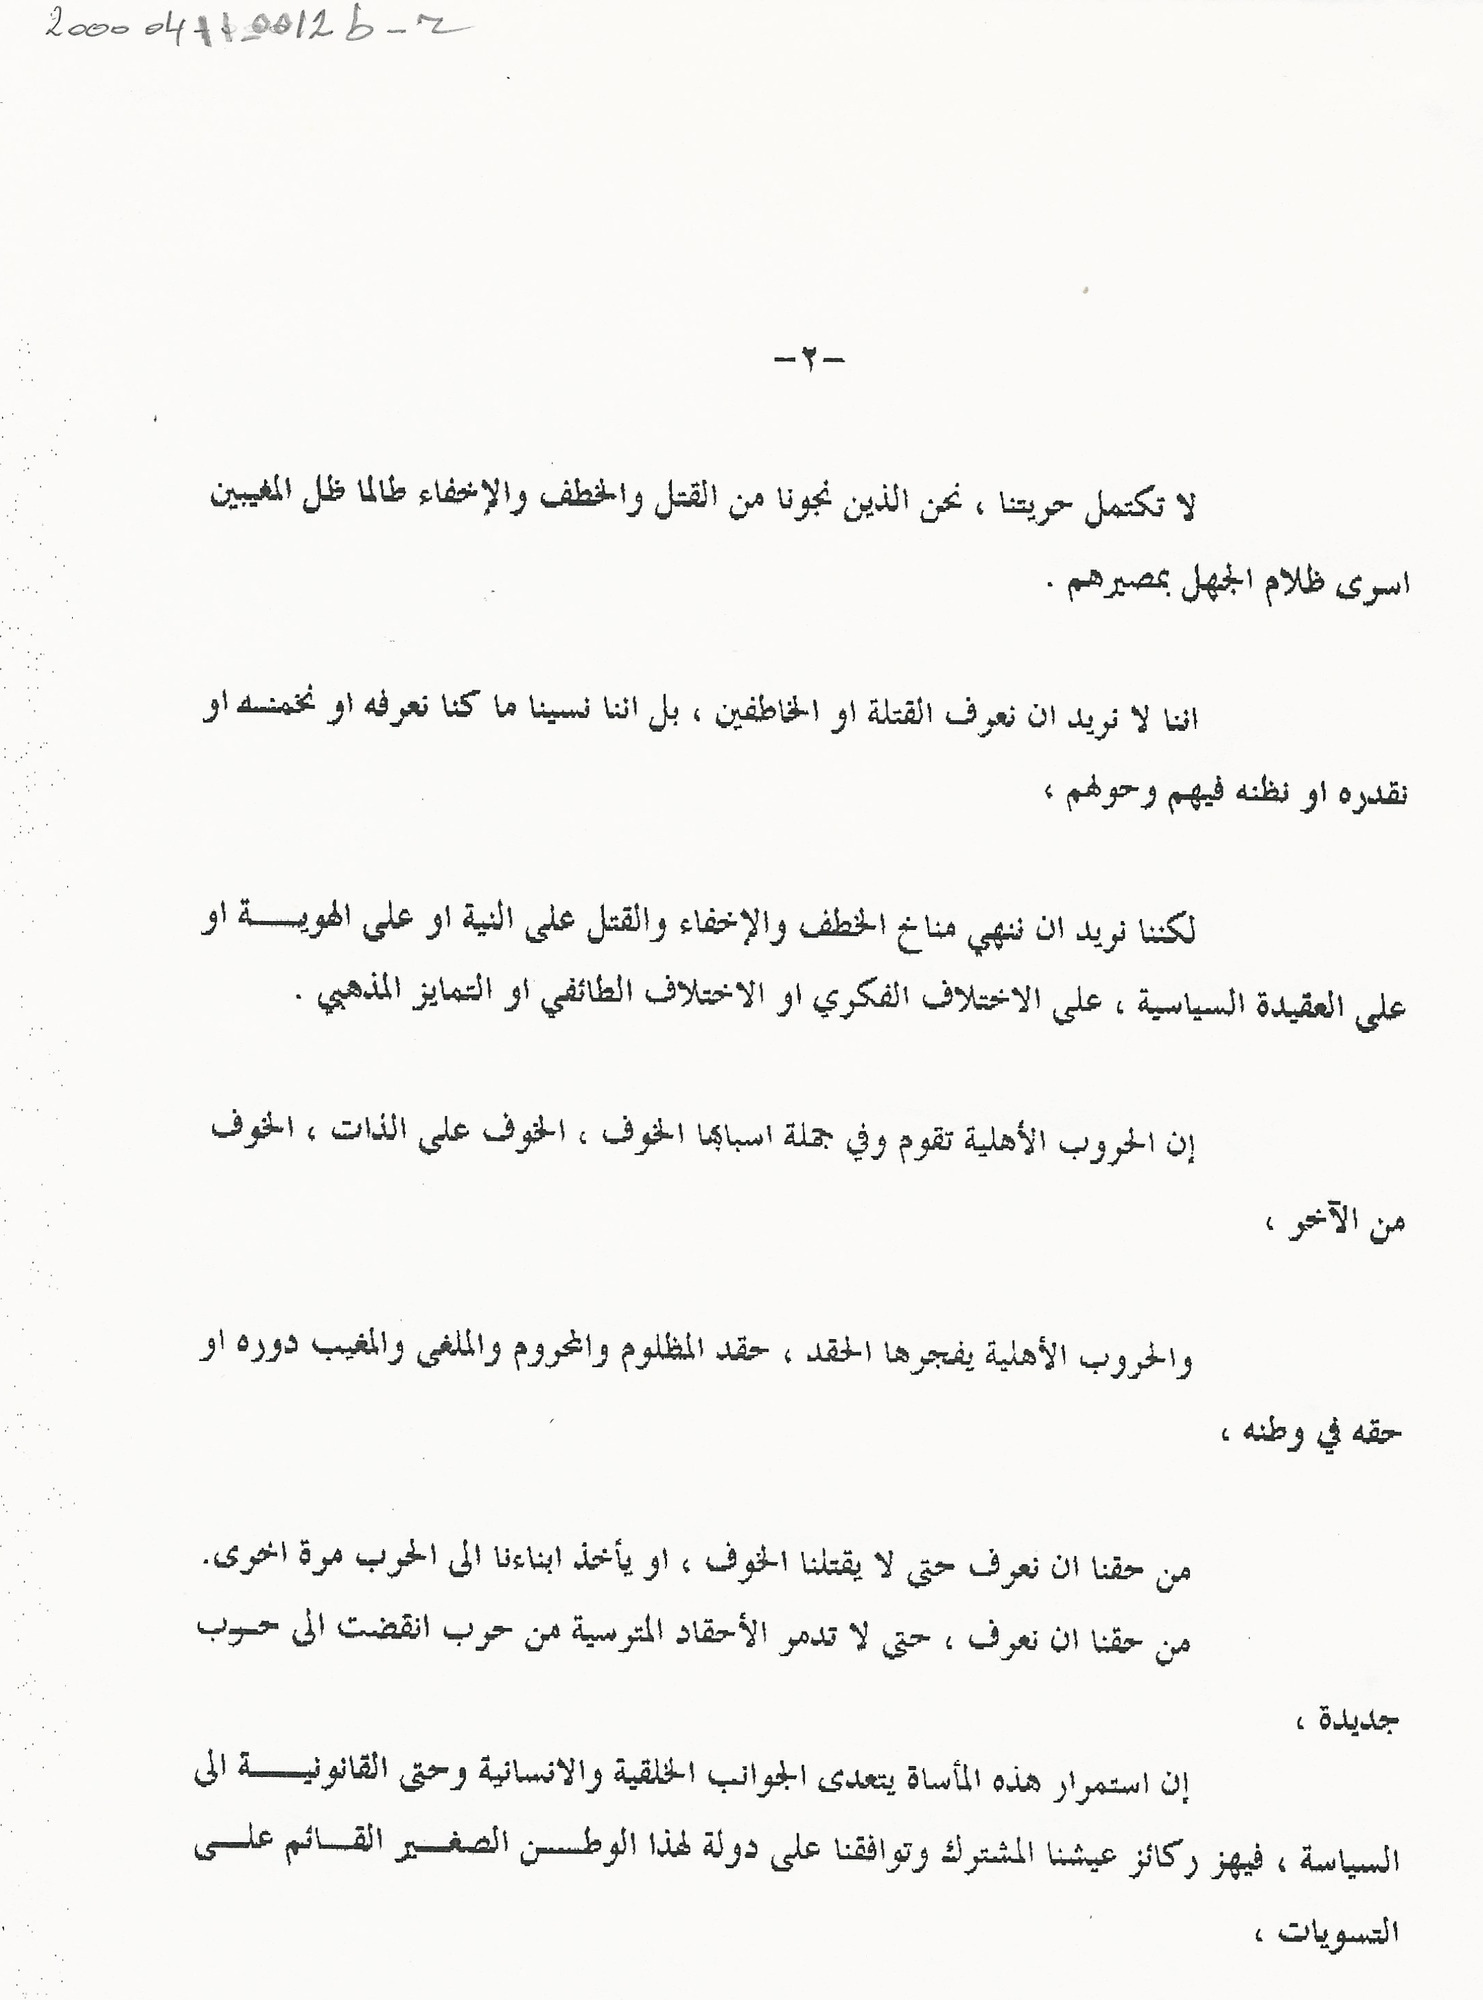 -٢-
لا تكتمل حريتنا ، نحن الذين نجونا من القتل والخطف والإخفاء طالما ظل المغيبين
اسرى ظلام الجهل بمصيرهم .
اننا لا نريد ان نعرف القتلة او الخاطفين ، بل اننا نسينا ما كنا نعرفه او نخمنـه او
نقدره او نظنه فيهم وحولهم ،
لكننا نريد ان ننهي مناخ الخطف والإخفاء والقتل على النية او على الهويـــة او
على العقيدة السياسية ، على الاختلاف الفكري او الاختلاف الطائفي او التمايز المذهبي .
إن الحروب الأهلية تقوم وفي جملة اسبابها الخوف ، الخوف على الذات ، الخوف
من الآخر ،
والحروب الأهلية يفجرها الحقد ، حقد المظلوم والمحروم والملغى والمغيب دوره او
حقه في وطنه ،
من حقنا ان نعرف حتى لا يقتلنا الخوف ، او يأخذ ابناءنا الى الحرب مرة اخرى.
من حقنا ان نعرف ، حتى لا تدمر الأحقاد المترسبة من حرب انقضت الى حـرب
جديدة ،
إن استمرار هذه المأساة يتعدى الجوانب الخلقية والانسانية وحتى القانونيـــة الى
السياسة ، فيهز ركائز عيشنا المشترك وتوافقنا على دولة لهذا الوطــن الصغـير القـائم علـى
التسويات ،